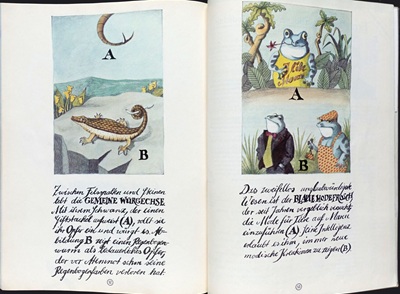 A
B
Zwischen Felsspalten und Steinen
lebt die GEMEINE WÜRGECHSE
Mit ihrem Schwanz, der einen
aufweist (A), rollt sie
ihr Opfer ein und würgt es. Ab-
bildung B zeigt einen Regenbogen-
wurm als bedauerliches Opfer,
der vor Atemnot schon seine
Regenbogenfarben verloren hat.
A
B
Das zweifellos
Wesen ist der BLAUE MODEFROSCH
der seit Jahren vergeblich versucht
die Mode für Tiere auf
einzuführen (A) Seine Intelligenz
erlaubt es ihm, immer neue
modische Kreationen zu zeigen (B)